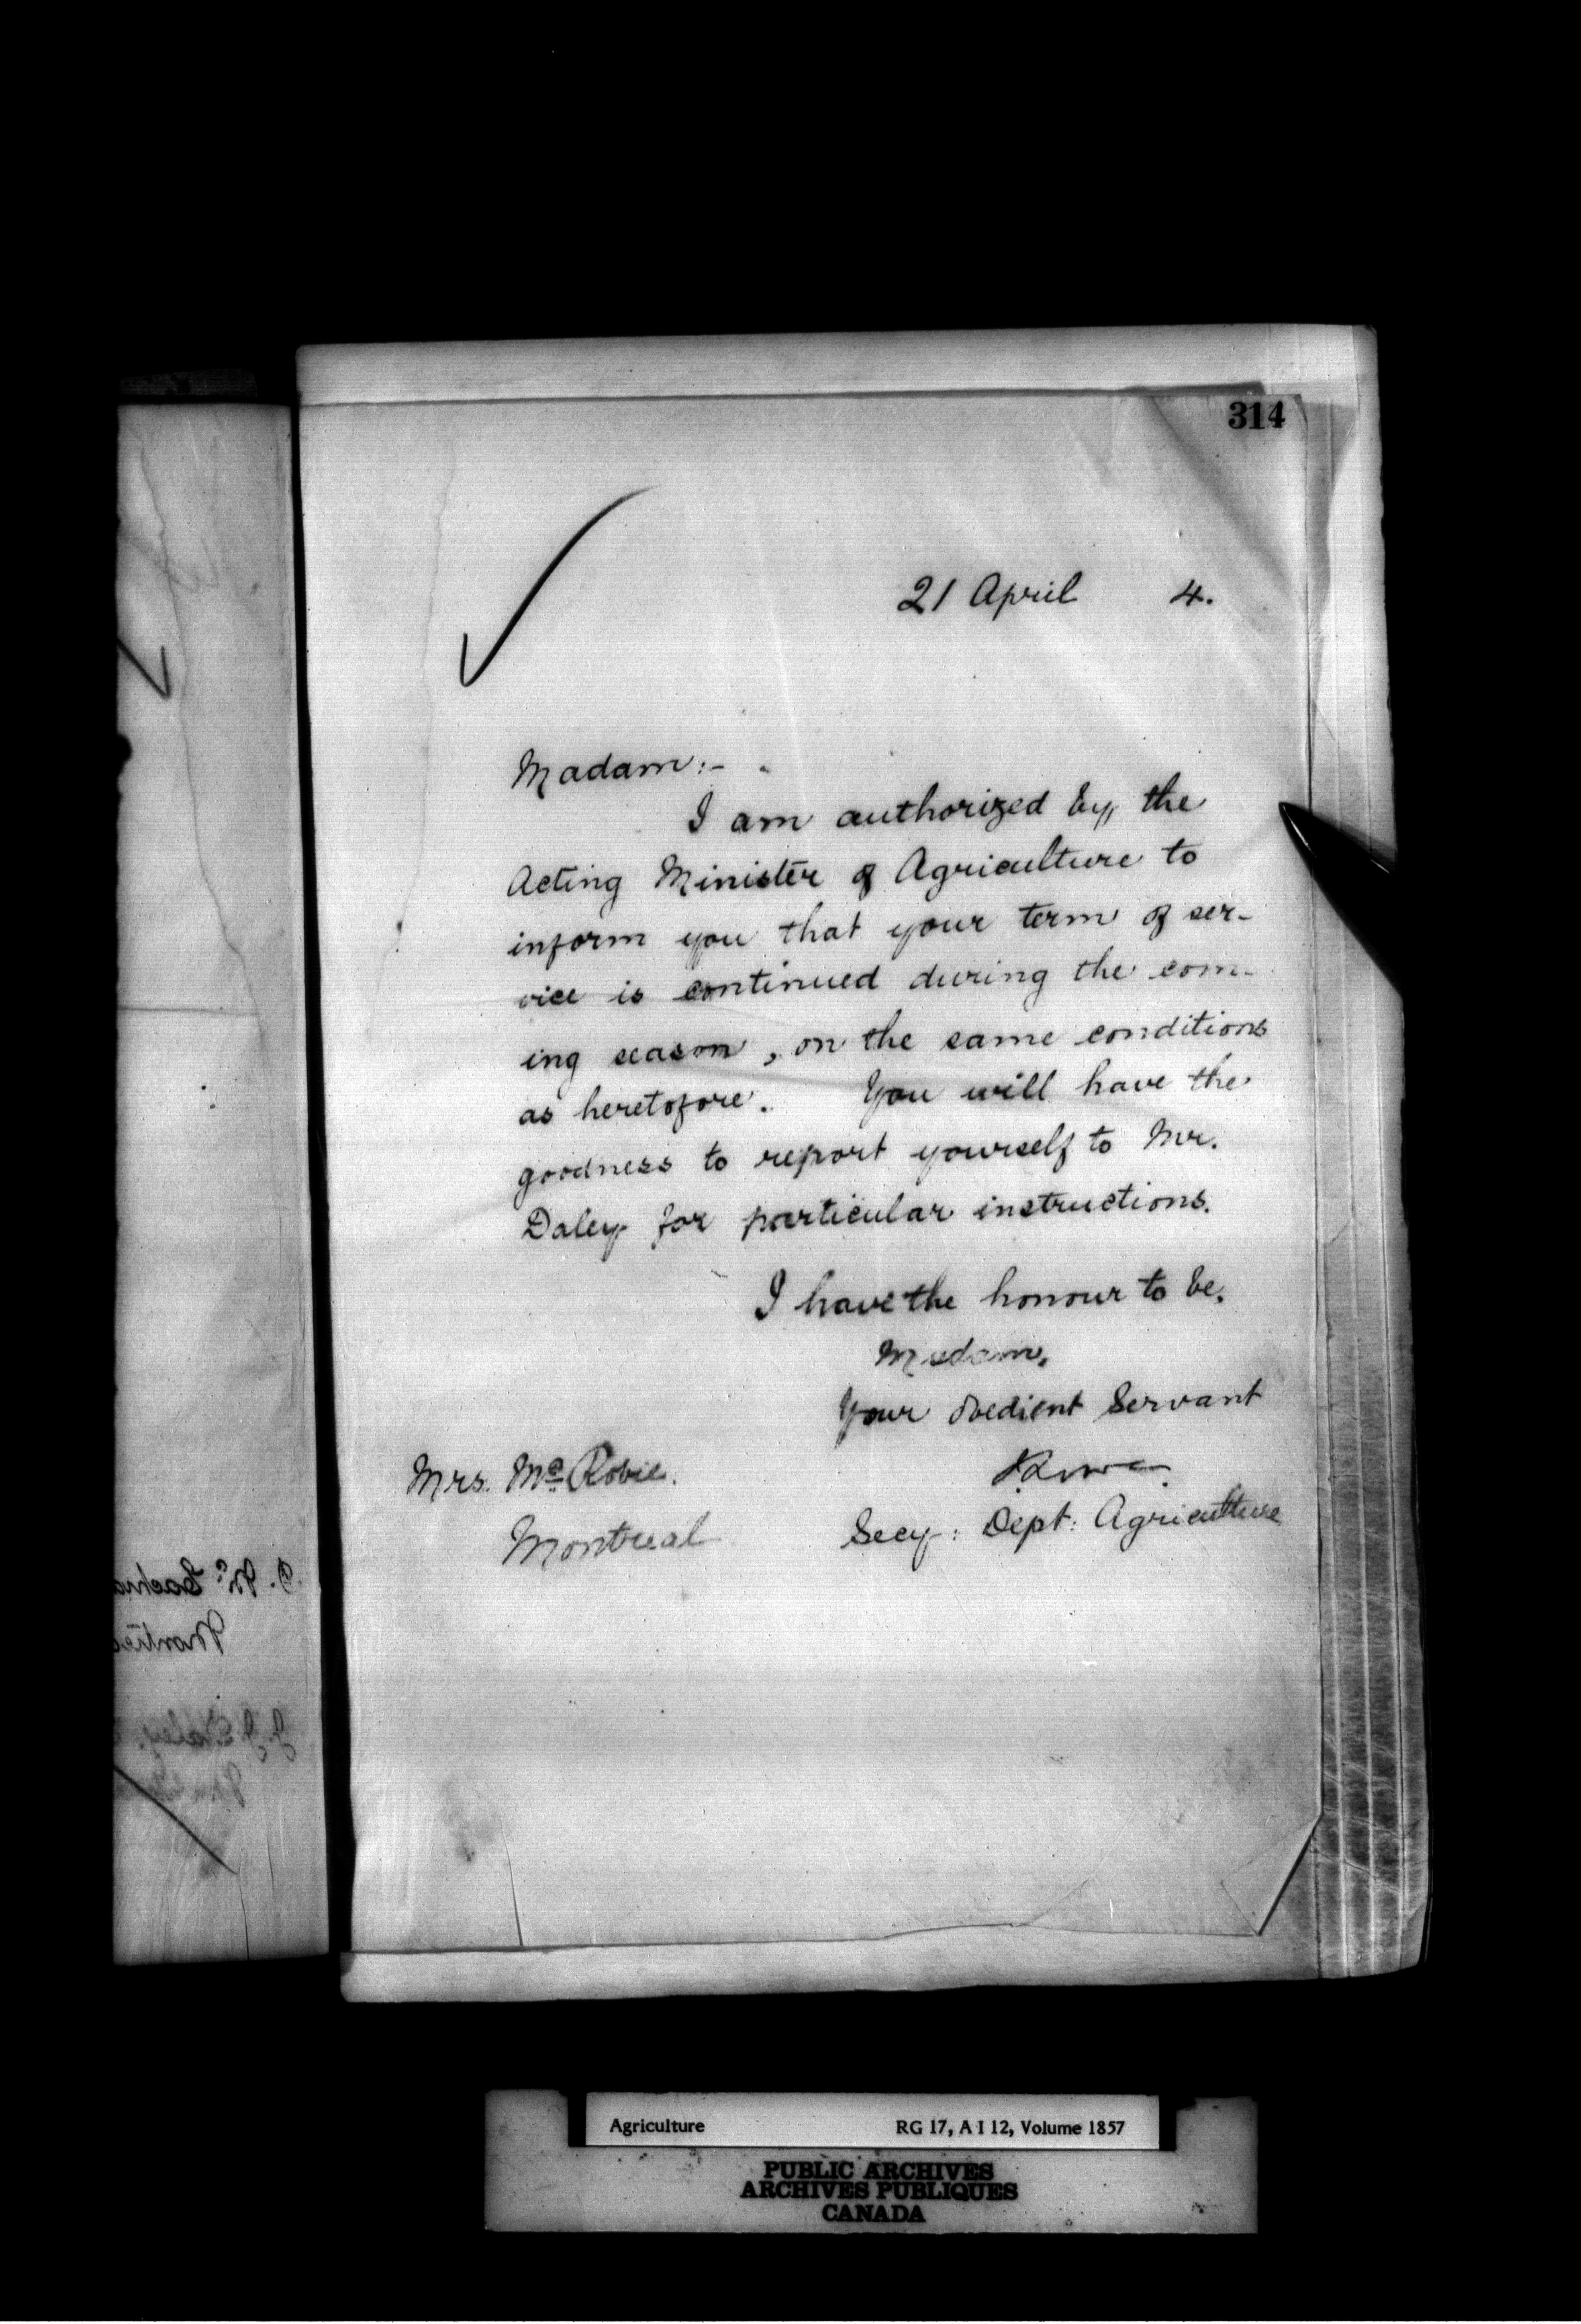 314
21 April 4.
Madam:-
I am authorized by the
Acting Minister of Agriculture to
inform you that your term of ser-
vice is continued during the com-
ing season, on the same conditions
as heretofore. You will have the
goodness to report yourself to Mr.
Daley for particular instructions.
I have the honour to be,
Madam,
Your obedient Servant
Secy: Dept: Agriculture
Mrs. Mc Robie.
Montreal
Agriculture RG 17, A I 12, Volume 1857
PUBLIC ARCHIVES
ARCHIVES PUBLIQUES
CANADA